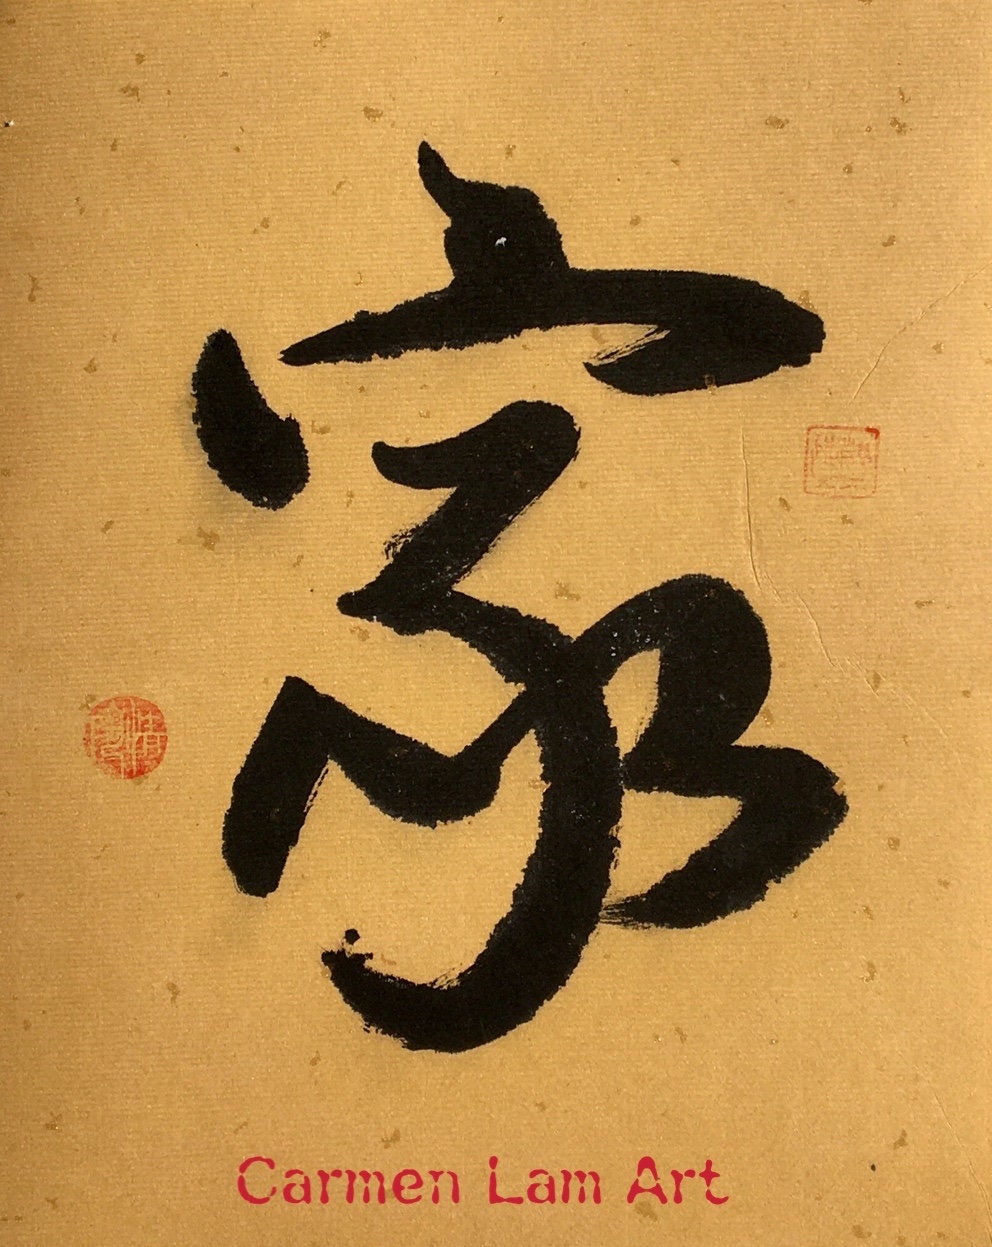 家
Carmen Lam Art